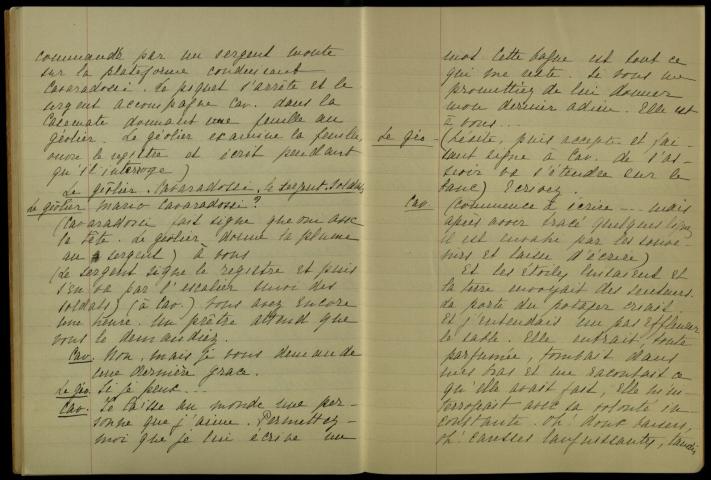 commandé par un sergent monte
sur la plateforme conduisant
Cavaradossi. Le piquet s'arrête et le
sergent accompagne Cav. dans la
Casemate donnant une feuille au
geôlier. Le geôlier examine la feuille,
ouvre le registre et écrit pendant
qu'il interroge)
Le geôlier. Cavaradossi, le sergent. Soldats
Le geôlier Mario Cavaradossi?
(Cavaradossi fait signe que oui avec
la tête. Le geôlier donne la plume
au sergent) à vous
(Le sergent signe le registre et puis
s'en va par l'escalier suivi des
soldats) (à Cav.) Vous avez encore
une heure. Un prêtre attend que
vous le demandiez.
Cav. Non, mais je vous demande
une dernière grace.
Le Géo. Si je peux...
Cav. Je laisse au monde une per-
sonne que j'aime. Permettez-
moi que je lui écrive un
mot. Cette bague est tout ce
qui me reste. Si vous me
promettiez de lui donner
mon dernier adieu. Elle est
à vous...
Le géo - (hésite, puis accepte et fai-
sant signe à Cav. de s'as-
seoir va s'étendre sur le
banc) Ecrivez.
Cav. (commence à écrire... mais
après avoir tracé quelques lignes,
il est envahi par les souve-
nirs et laisse d'écrire)
Et les étoiles luisaient et
la terre envoyait des senteurs.
La porte du potager criait
et j'entendais un pas effleurer
le sable. Elle entrait toute
parfumée, tombait dans
mes bras et me racontait ce
qu'elle avait fait, elle m'in-
terrogeait avec sa volonté in-
constante. Oh! doux baisers,
oh! caresses languissantes, tandis